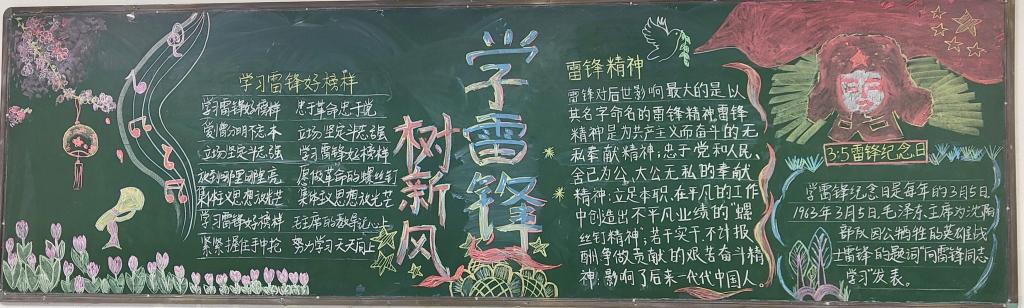 学习雷锋好榜样
学习雷锋好榜样 忠于革命忠于党
爱憎分明不忘本 立场坚定斗志强
立场坚定斗志强 学习雷锋好榜样
放到哪里哪里亮 愿做革命的螺丝钉
集体主义思想放光芒 集体主义思想放光芒
学习雷锋好榜样 毛主席的教导记心上
紧紧握住手中枪 努力学习天天向上
学雷锋
树新风
雷锋精神
雷锋对后世影响最大的是以
其名字命名的雷锋精神雷锋
精神是为共产主义而奋斗的无
私奉献精神;忠于党和人民、
舍己为公、大公无私的奉献
精神;立足本职、在平凡的工作
中创造出不平凡业绩的"螺
丝钉精神;若干实干、不计报
酬、争做贡献的艰苦奋斗精
神,影响了后来一代代中国人
3·5雷锋纪念日
学雷锋纪念日是每年的3月5日
1963年3月5日,毛泽东主席为沈阳
部队因公牺牲的英雄战
士雷锋的题词"向雷锋同志
学习"发表。